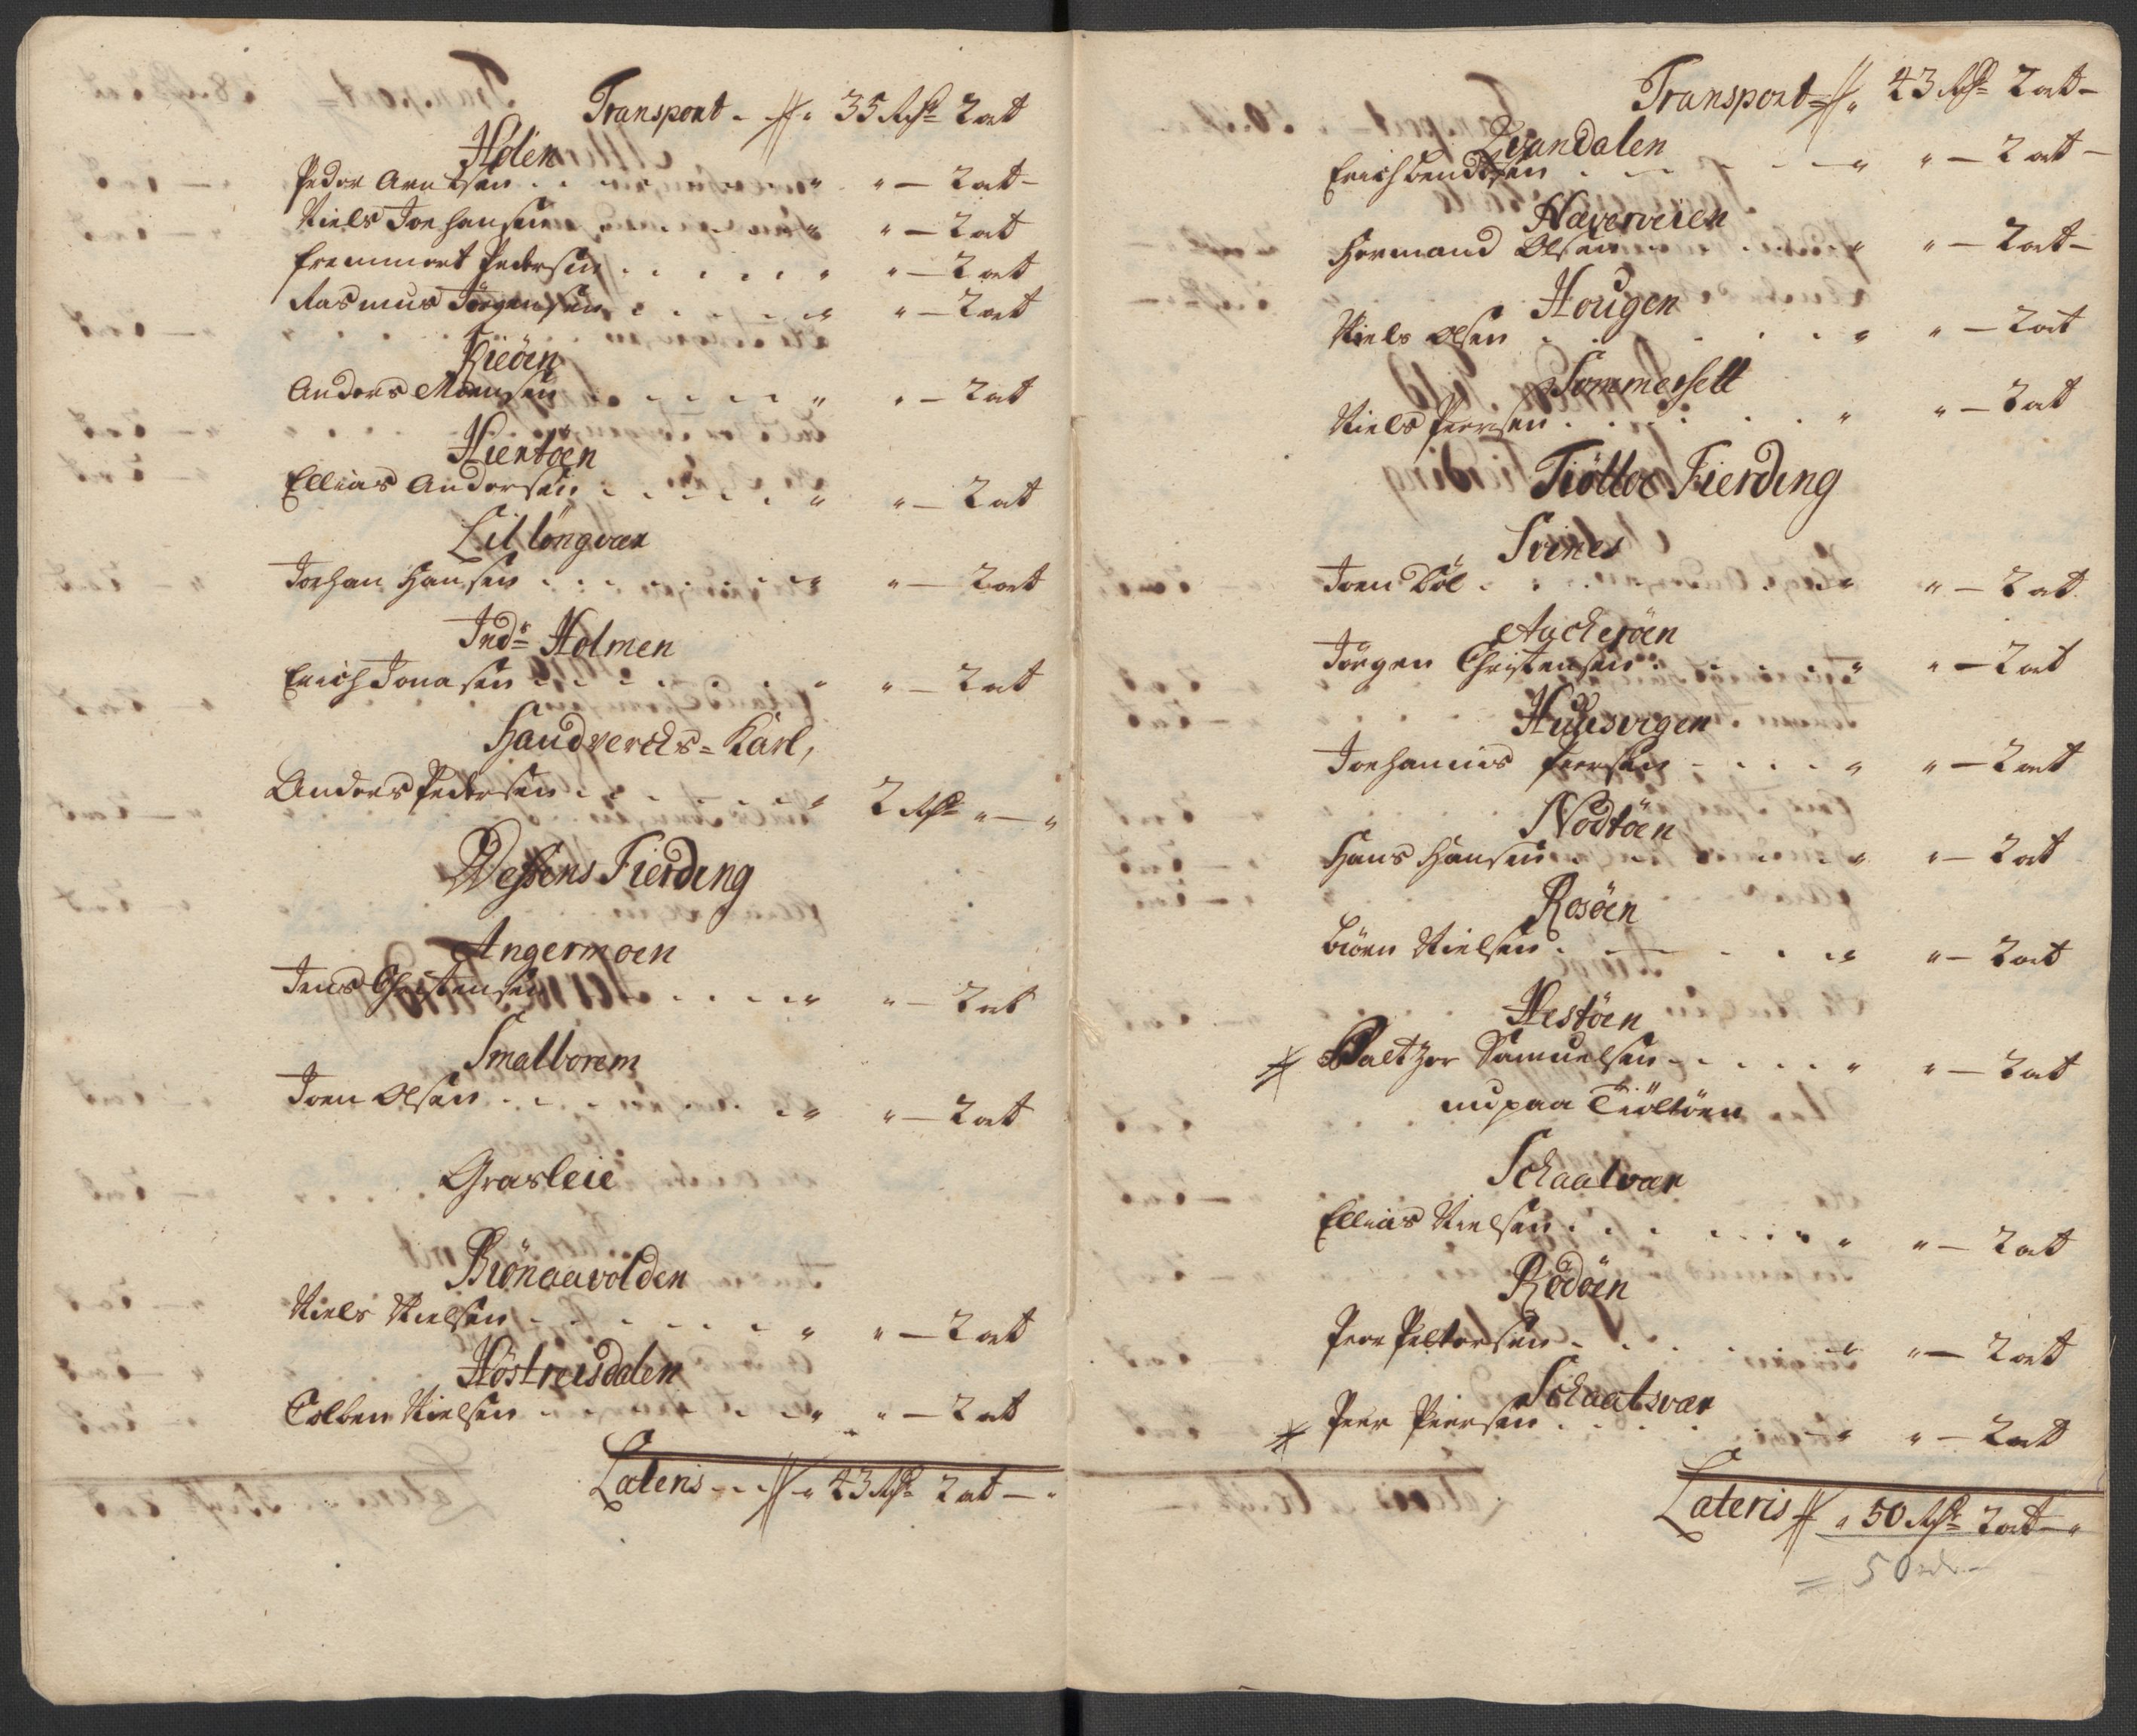 Transport - 35 Rdr 2 ort
Holen
Peder Arntsen - - - " " — 2 ort -
Niels Joehansen - - - " " — 2 ort
Frommert Pedersen - - - " " — 2 ort
Rasmus Jörgensen - - - " " — 2 ort
Rieöen
Anders Monsen - - - " " — 2 ort
Hiertöen
Ellias Andersen - - - " " — 2 ort
Lillongvær
Joehan Hansen - - - " " — 2 ort
Indr Holmen
Erich Jonasen - - - " " — 2 ort
Handverchs = Karl,
Anders Pedersen - - - " 2 Rdr " — "
Wefsens Fierding
Angermoen
Jens Christensen - - - " " — 2 ort
Smalborem
Joen Olsen - - - " " — 2 ort
Grasleie
Biönaavolden
Niels Nielsen - - - " " — 2 ort
Höstreisdalen
Colben Nielsen - - - " " — 2 ort
Lateris - - 43 Rdr 2 ort — "
Transport = 43 Rdr 2 ort -
Qvandalen
Erich Bendtsen - - - " " — 2 ort -
Haverveien
Hermand Olsen - - - " " — 2 ort -
Hougen
Niels Olsen - - - " " — 2 ort
Sommersett
Niels Peersen - - - " " — 2 ort
Tiötloe Fierding
Svines
Joen Böe - - - " " — 2 ort
Aackeröen
Jörgen Christensen - - - " " — 2 ort
Huusvigen
Joehannis Peersen - - - " " — 2 ort
Nodtöen
Hans Hansen - - - " " — 2 ort
Rosöen
Biörn Nielsen - - - " " — 2 ort
Hestöen
Baltzer Samuelsen - - - " " — 2 ort
nu paa Tiöltöen
Schaalvær
Ellias Nielsen - - - " " — 2 ort
Rödöen
Peer Pettersen - - - " " — 2 ort
Schaalsvær
Peer Peersen - - - " " — 2 ort
Lateris " 50 Rdr 2 ort — "
= 50 rdr -